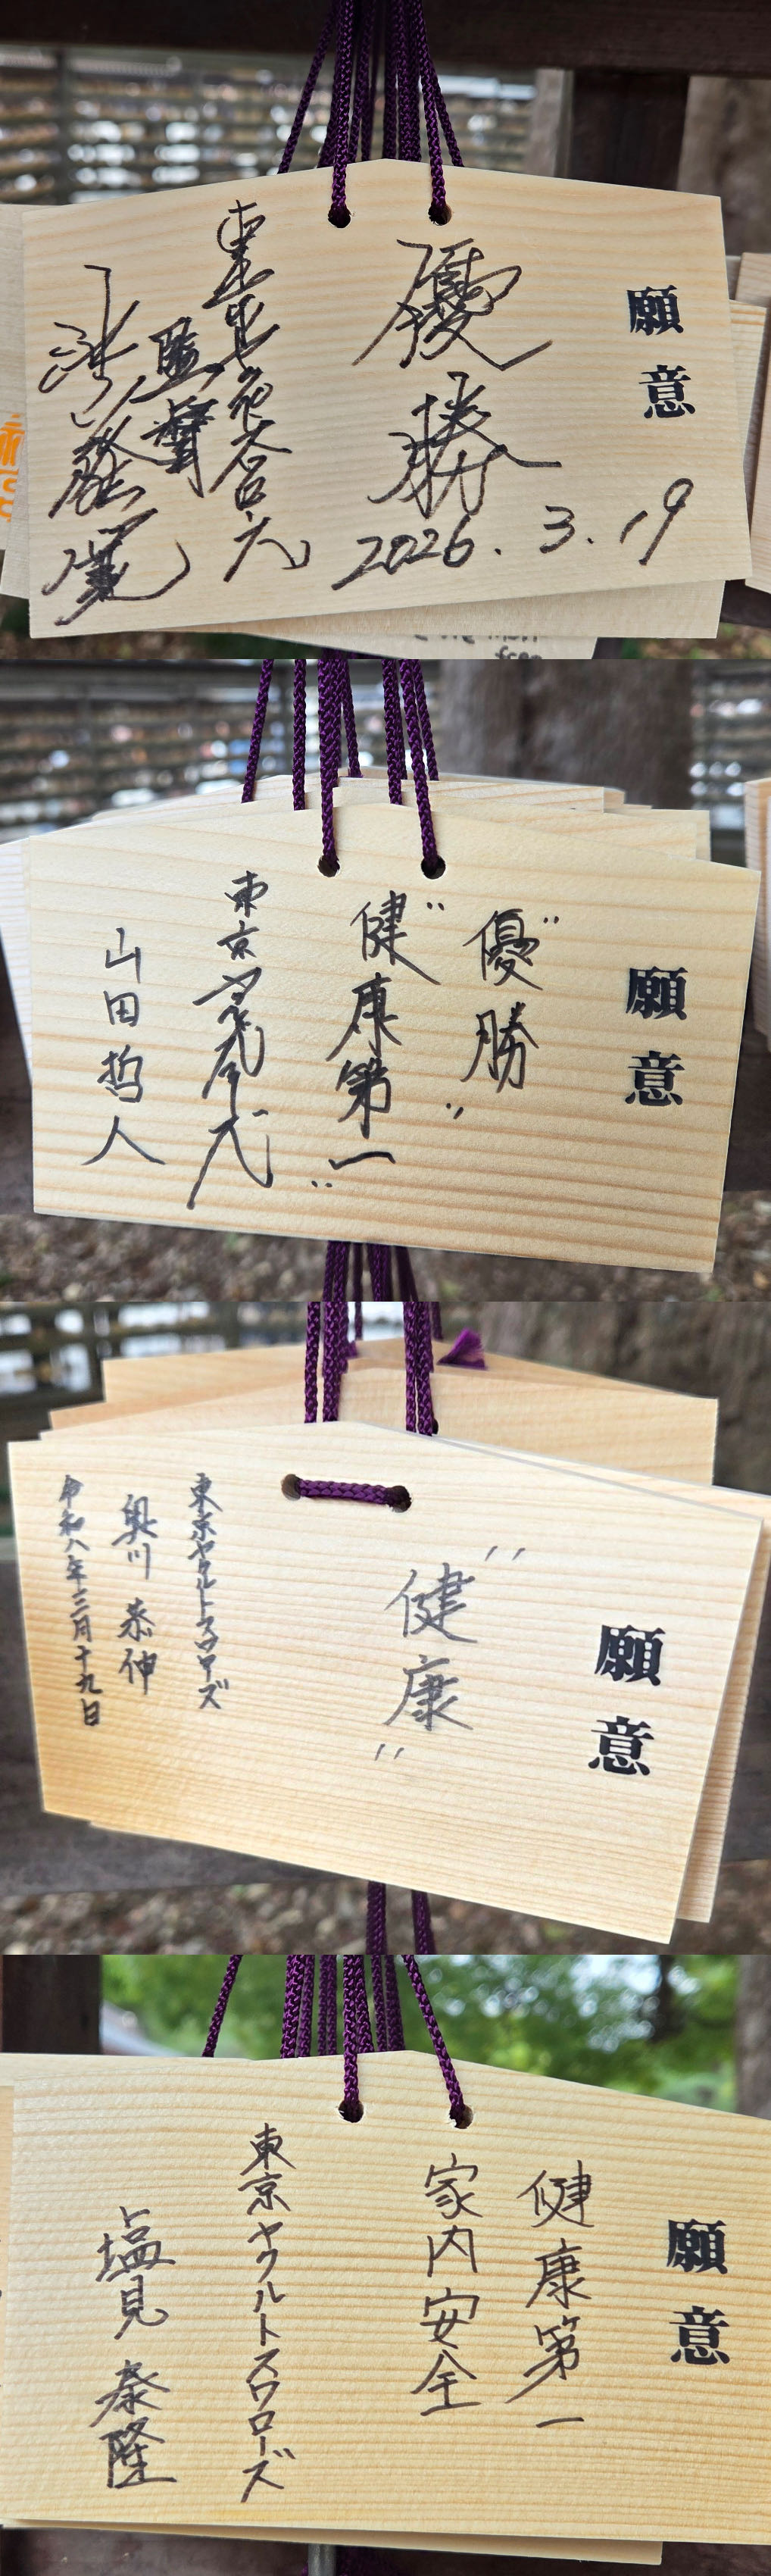 願意
優勝
2026.3.19
東京
監督
池山隆寛
願意
"優勝"
"健康第一"
東京
山田哲人
願意
"健康"
東京ヤクルトスワローズ
奥川 恭伸
令和八年三月十九日
願意
健康第一
家内安全
東京ヤクルトスワローズ
塩見 泰隆